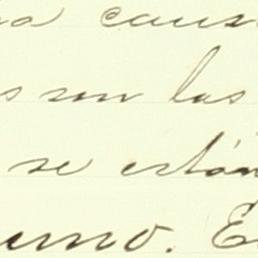 a caus
s son las
se están
erno. E